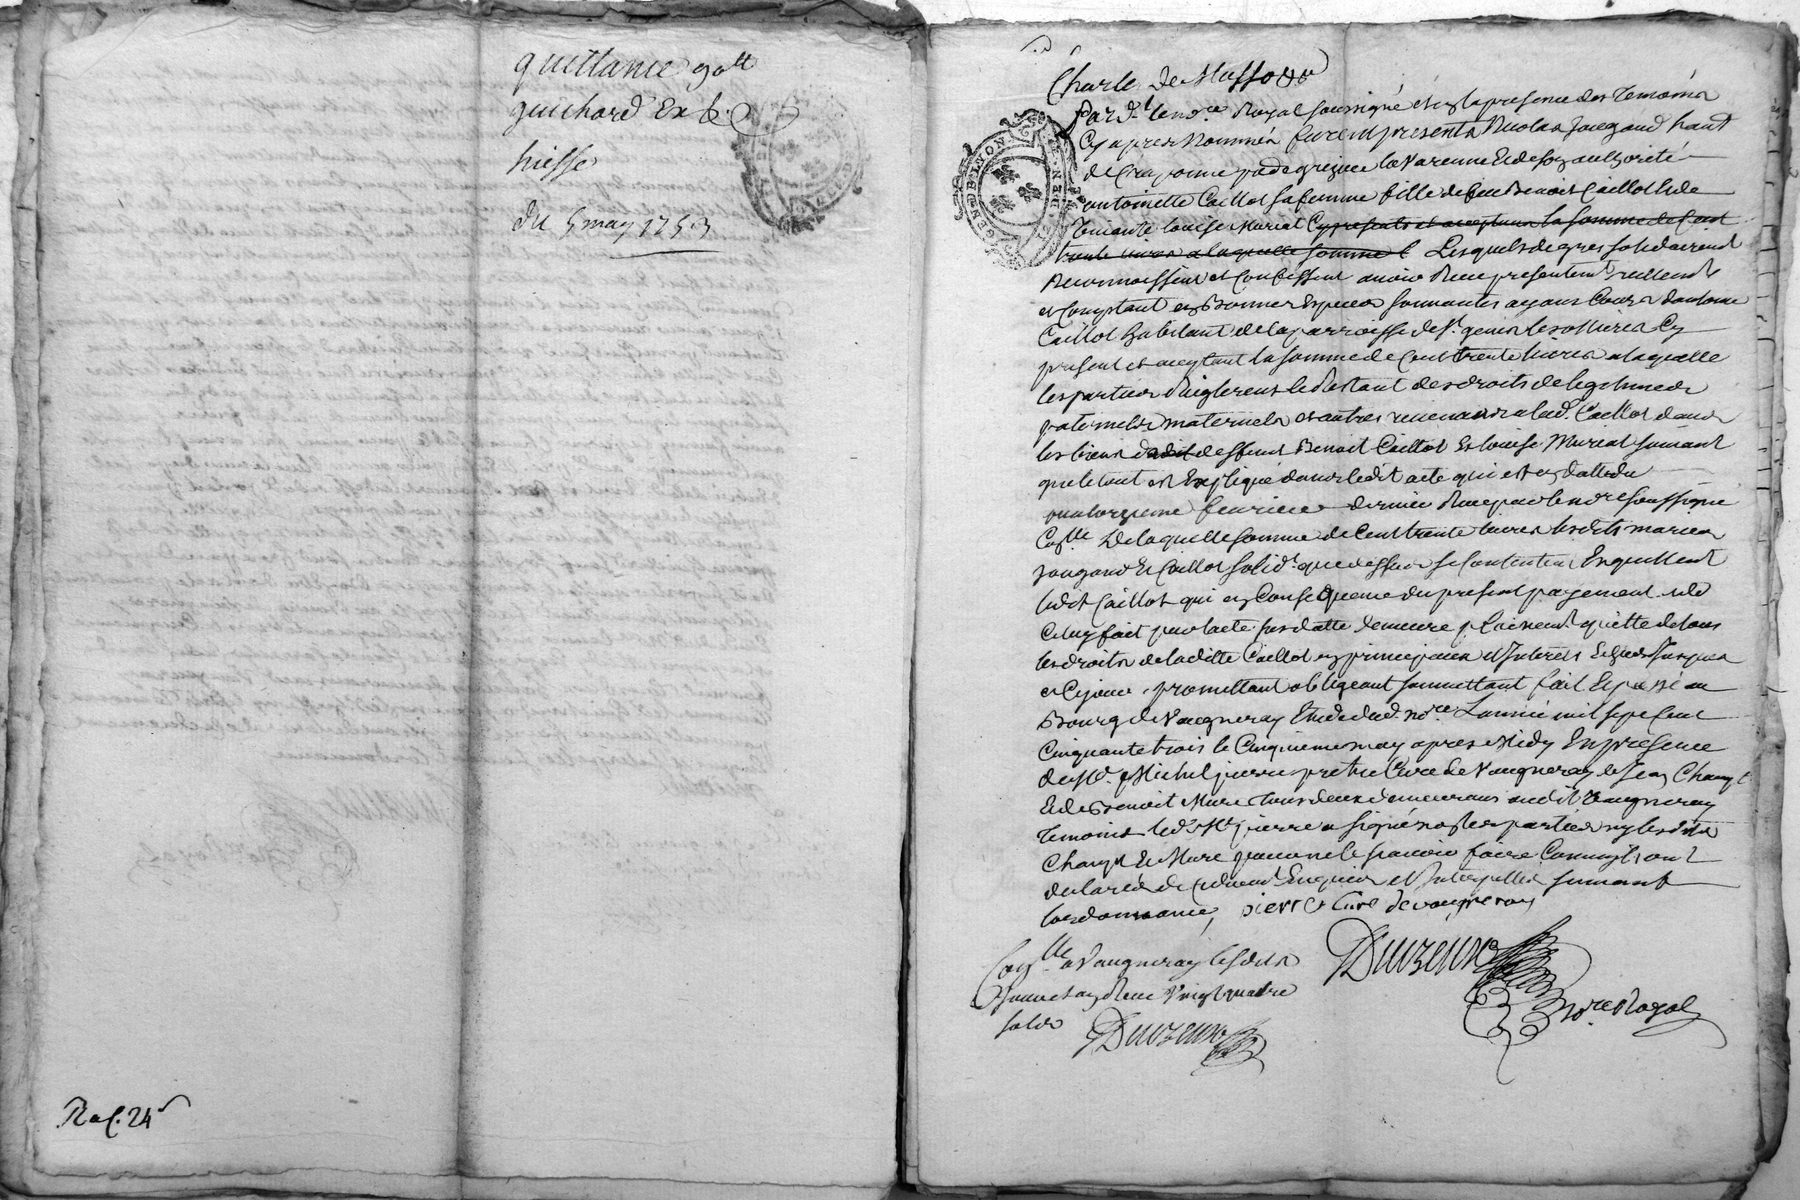 quittance 90lt
guichard Ex
niesse
du 5 may 1753
Rac. 24s
Charle de Musson
Pard.t le no.re Royal soussigné et en la presence des Temoins
Cy apres Nommés furent presents Nicolas Jougand hant
de Craponne p.sse de grezieu la Varenne Et de son authorité
antoinette Caillot sa femme fille de feu Benoit Caillot Et de
vivante louise Muriat Cy presents et acceptant la somme de Cent
trente livres a laquelle somme Lesquels de gres solidairement
Reconnoissent et Confessent avoir Receu presentem.t reellem.t
et Comptant en Bonnes Especes sonnantes ayans Cours d'antoine
Caillot habitant de la parroisse de S.t genis les ollieres Cy
present et acceptant la somme de Cent trente livres a laquelle
les parties Reiglerent le Restant des droits de legitimes
paternels maternels et autres revenants a lad. Caillot dans
les biens desdits deffunts Benoit Caillot Et louise Muriat suivant
que le tout est Expliqué dans ledit acte qui est en datte du
quatorzieme fevrier dernier Receu par le no.re soussigné
Con.llé De laquelle somme de Cent trente livres lesdits maries
Jougand Et Caillot solid.t que dessus se Contentent En quittent
ledit Caillot qui en Consequence du present payement et de
Celuy fait par l'acte sus datté demeure plainem.t quitte de tous
les droits de laditte Caillot en principaux Interets Echeus Jusques
a Cejour, promettant obligeant soumettant fait Et passé au
Bourg de Vaugneray Etude dud. no.re L'année mil sept Cent
Cinquante trois le Cinquieme may apres Midy En presence
de M.e Michel pierre pretre Curé de Vaugneray de Jean Champt
Et de Benoit Mure tous deux demeurans audit Vaugneray
Temoins led. M.e pierre a signé non les parties ny lesdits
Champt Et Mure pour ne le scavoir faire Comm' ils ont
declaré de ce duem.t Enquis et Interpellés suivant
l'ordonnance, pierre Curé de vaugneray
Con.llé a Vaugneray lesdits
Jour et an Receu Vingt quatre
sols
Duvzeux
Duvzeux
no.re Royal